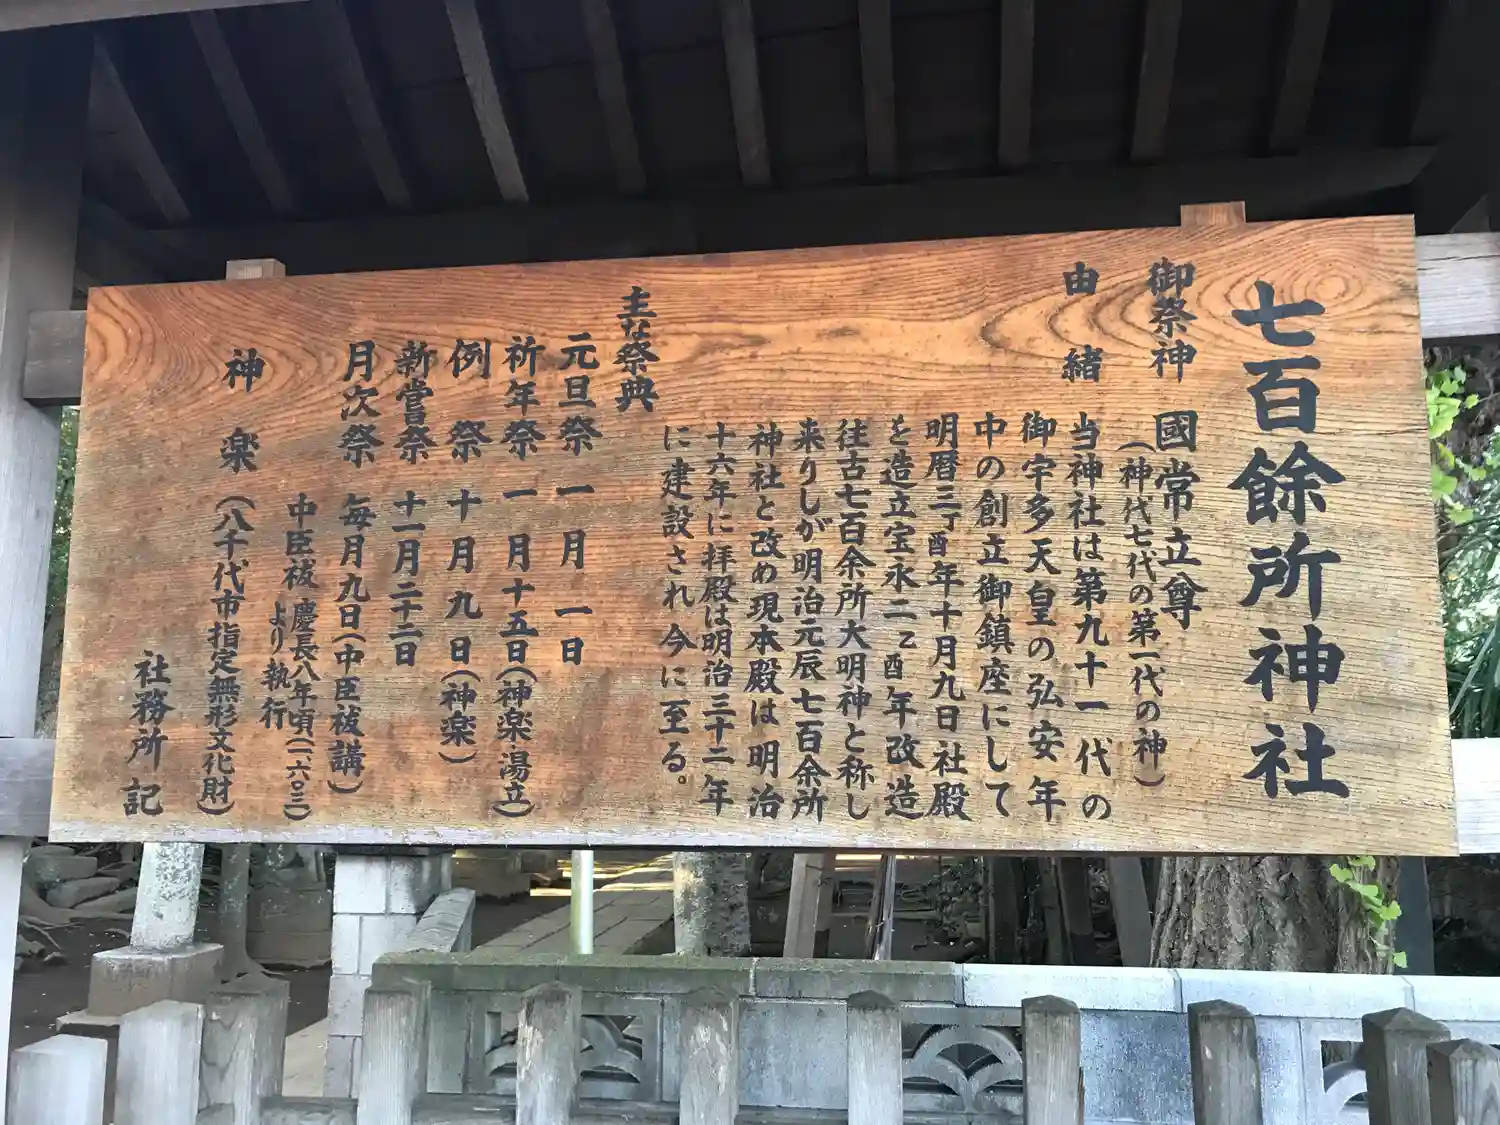 七百餘所神社
御祭神 國常立尊
（神代七代の第一代の神）
由緒
当神社は第九十一代の
御宇多天皇の弘安年
中の創立御鎮座にして
明暦三丁酉年十月九日社殿
を造立宝永二乙酉年改造
往古七百余所大明神と称し
来りしが明治元辰七百余所
神社と改め現本殿は明治
十六年に拝殿は明治三十二年
に建設され今に至る。
主な祭典
元旦祭 一月一日
祈年祭 一月十五日（神楽・湯立）
例祭 十月九日（神楽）
新嘗祭 十一月二十二日
月次祭 毎月九日（中臣祓講）
中臣祓 慶長八年頃（一、六〇三）
より執行
神楽（八千代市指定無形文化財）
社務所記